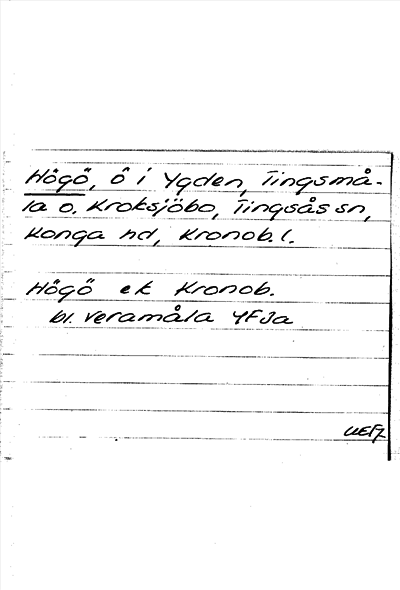 Högö, ö i Ygden, Tingsmå-
la o. Kroksjöbo, Tingsås sn,
Konga hd, Kronob. l.
Högö ek Kronob.
bl. Veramåla YF3a